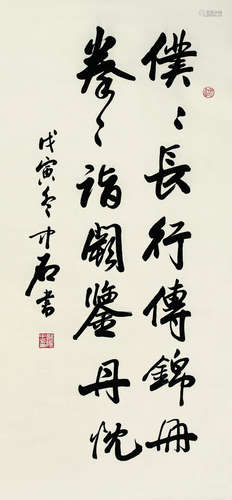 僕〻長行傳錦冊
拳〻詣闕鑒丹忱
戊寅冬中石書